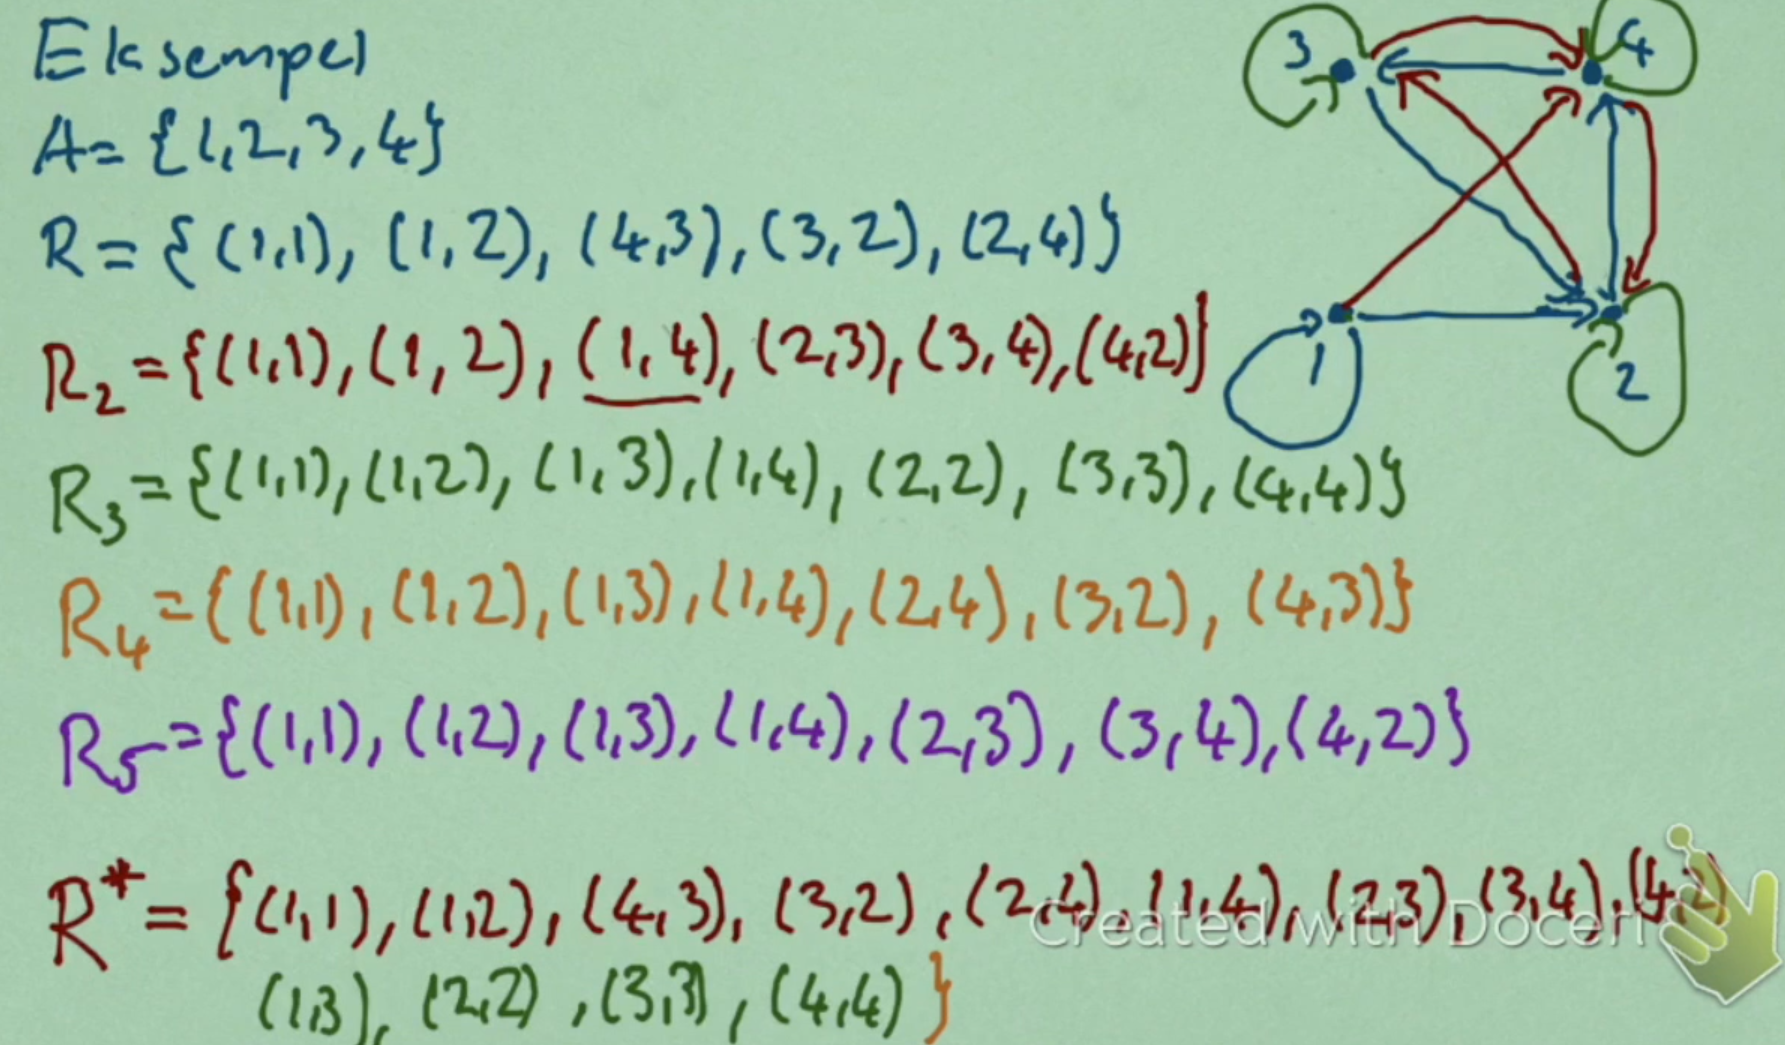 Eksempel
A = {1,2,3,4}
R = {(1,1), (1,2), (4,3), (3,2), (2,4)}
R₂ = {(1,1), (1,2), (1,4), (2,3), (3,4), (4,2)}
R₃ = {(1,1), (1,2), (1,3), (1,4), (2,2), (3,3), (4,4)}
R₄ = {(1,1), (1,2), (1,3), (1,4), (2,4), (3,2), (4,3)}
R₅ = {(1,1), (1,2), (1,3), (1,4), (2,3), (3,4), (4,2)}
R* = {(1,1), (1,2), (4,3), (3,2), (2,4), (1,4), (2,3), (3,4), (4,2)
(1,3), (2,2), (3,3), (4,4)}
3 4
1 2
Created with Doceri